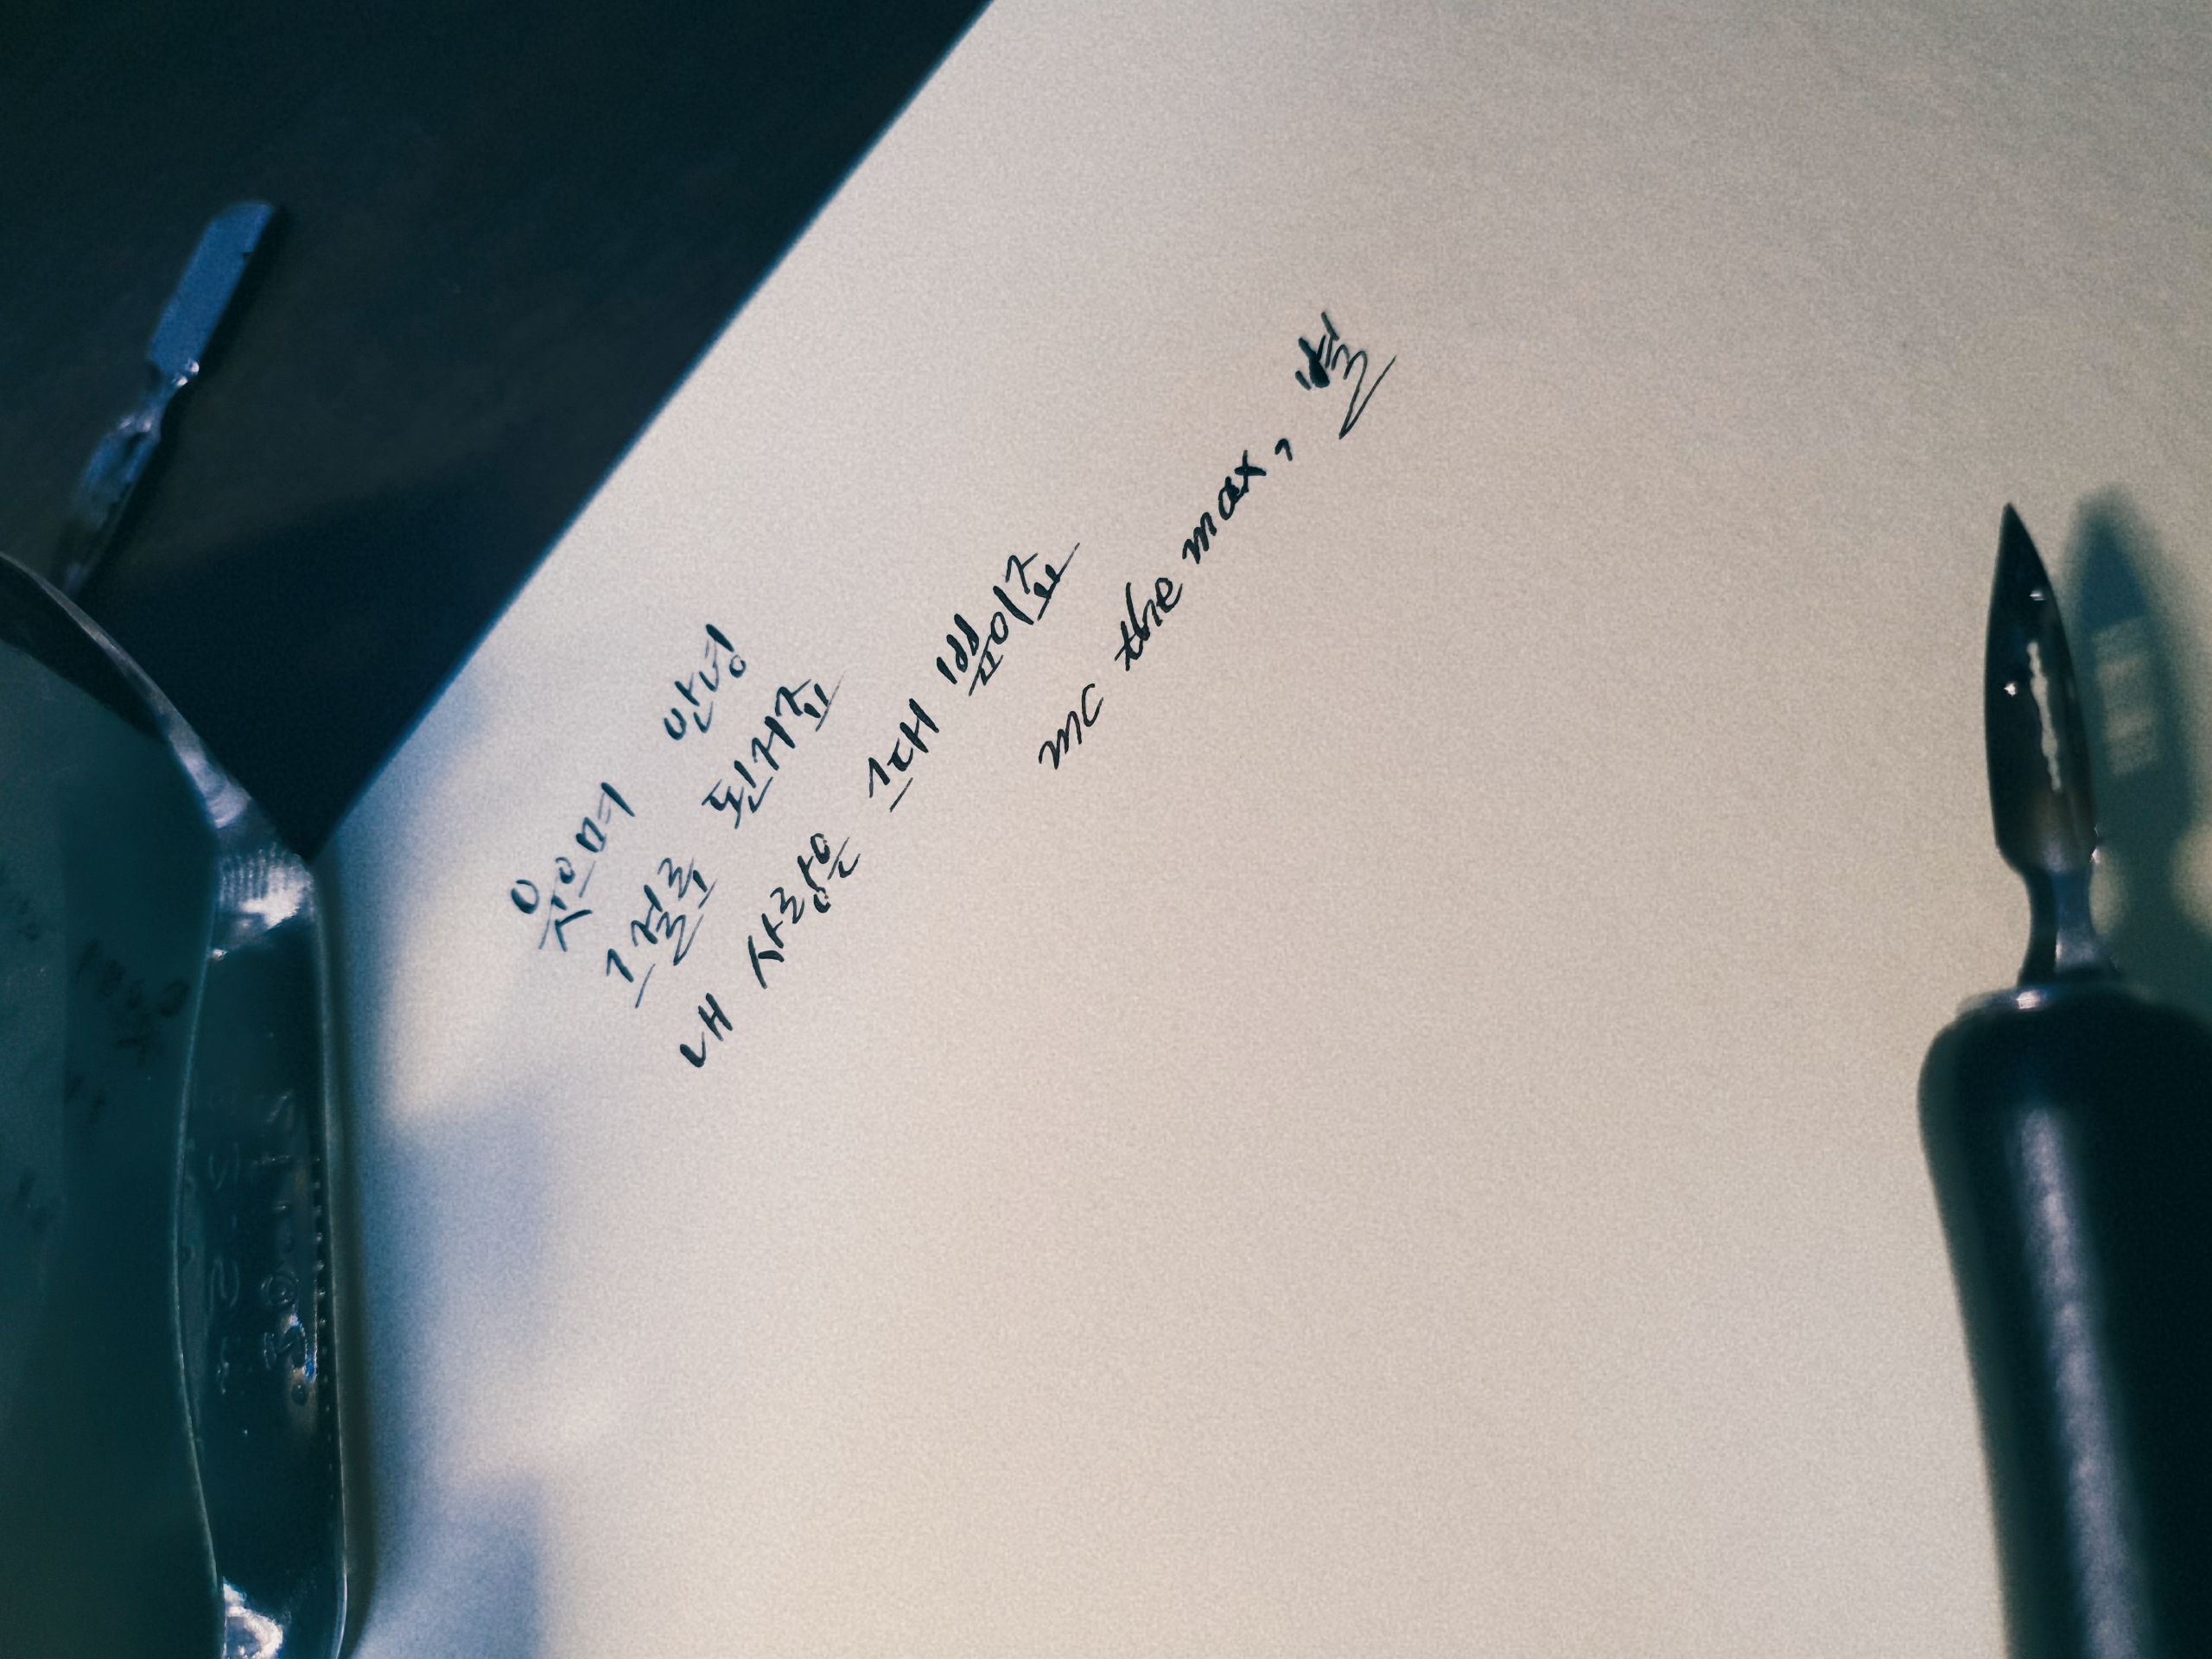 웃으며 안녕
그걸로 된거죠
내 사랑은 그대 뿐이죠
mc the max, 별